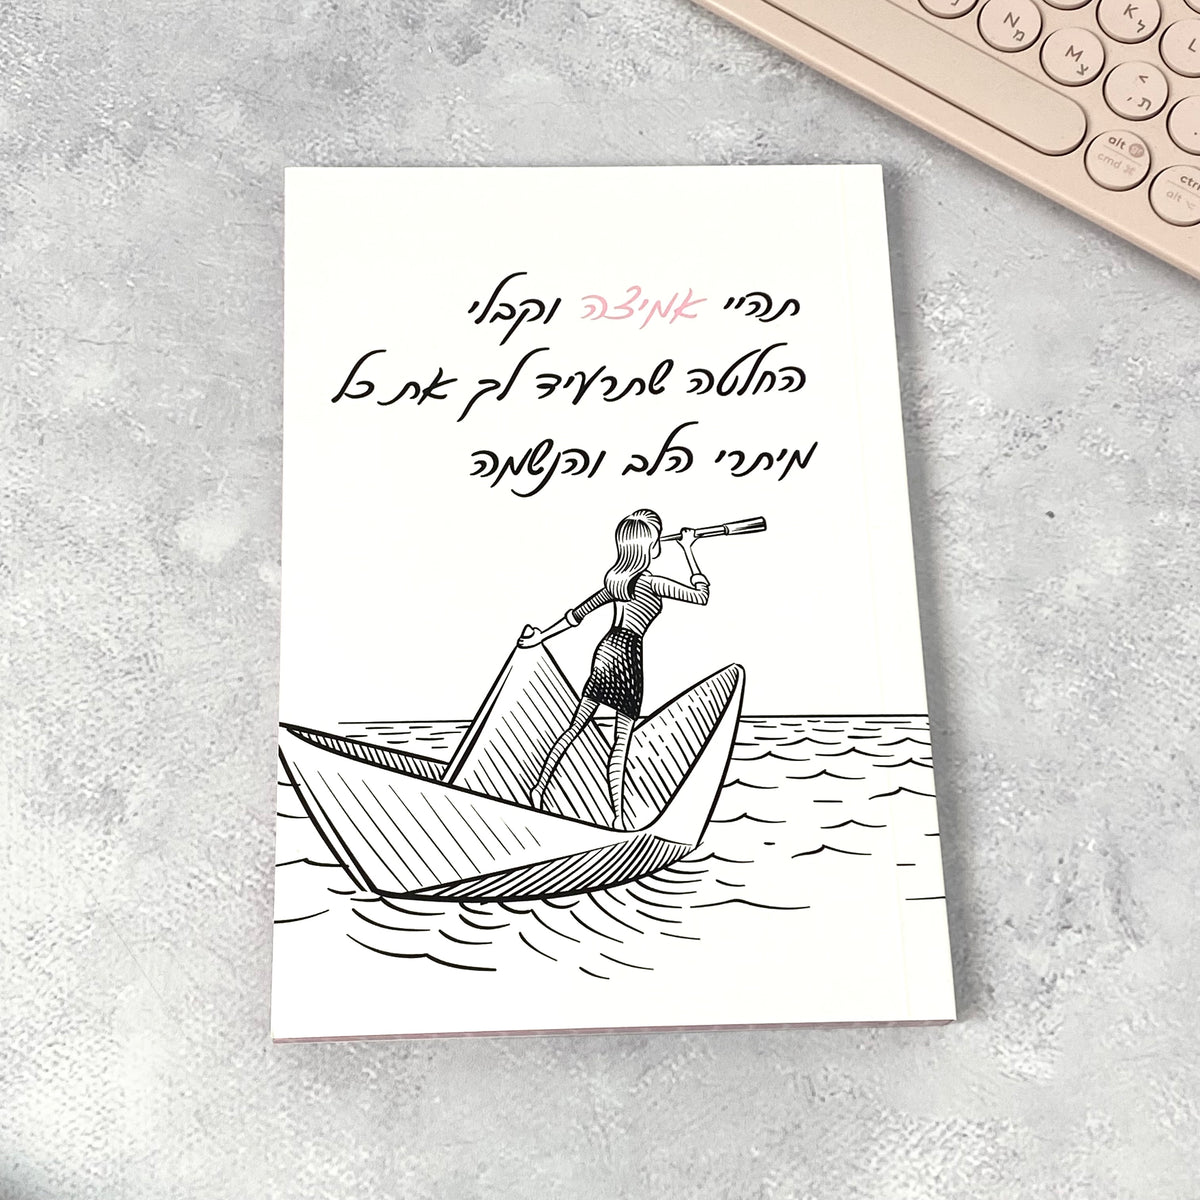 תהיי אמיצה וקבלי
החלטה שתרעיד לך את כל
מיתרי הלב והנשמה
N מ
K ל
L
M צ
< ת ,
alt gr
cmd ⌘
ctrl
alt ⌥